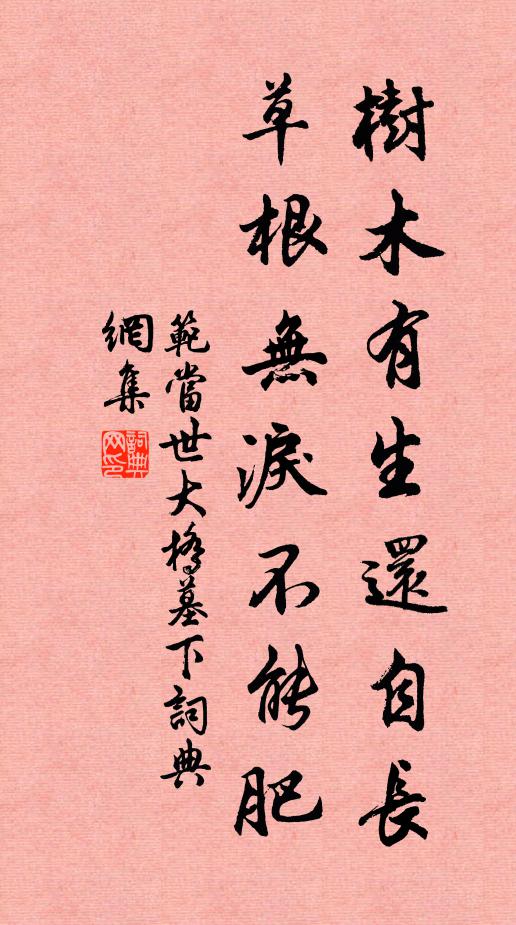 樹木有生還自長
草根無淚不能肥
範當世大橋墓下詞典
網集
詞典
网印